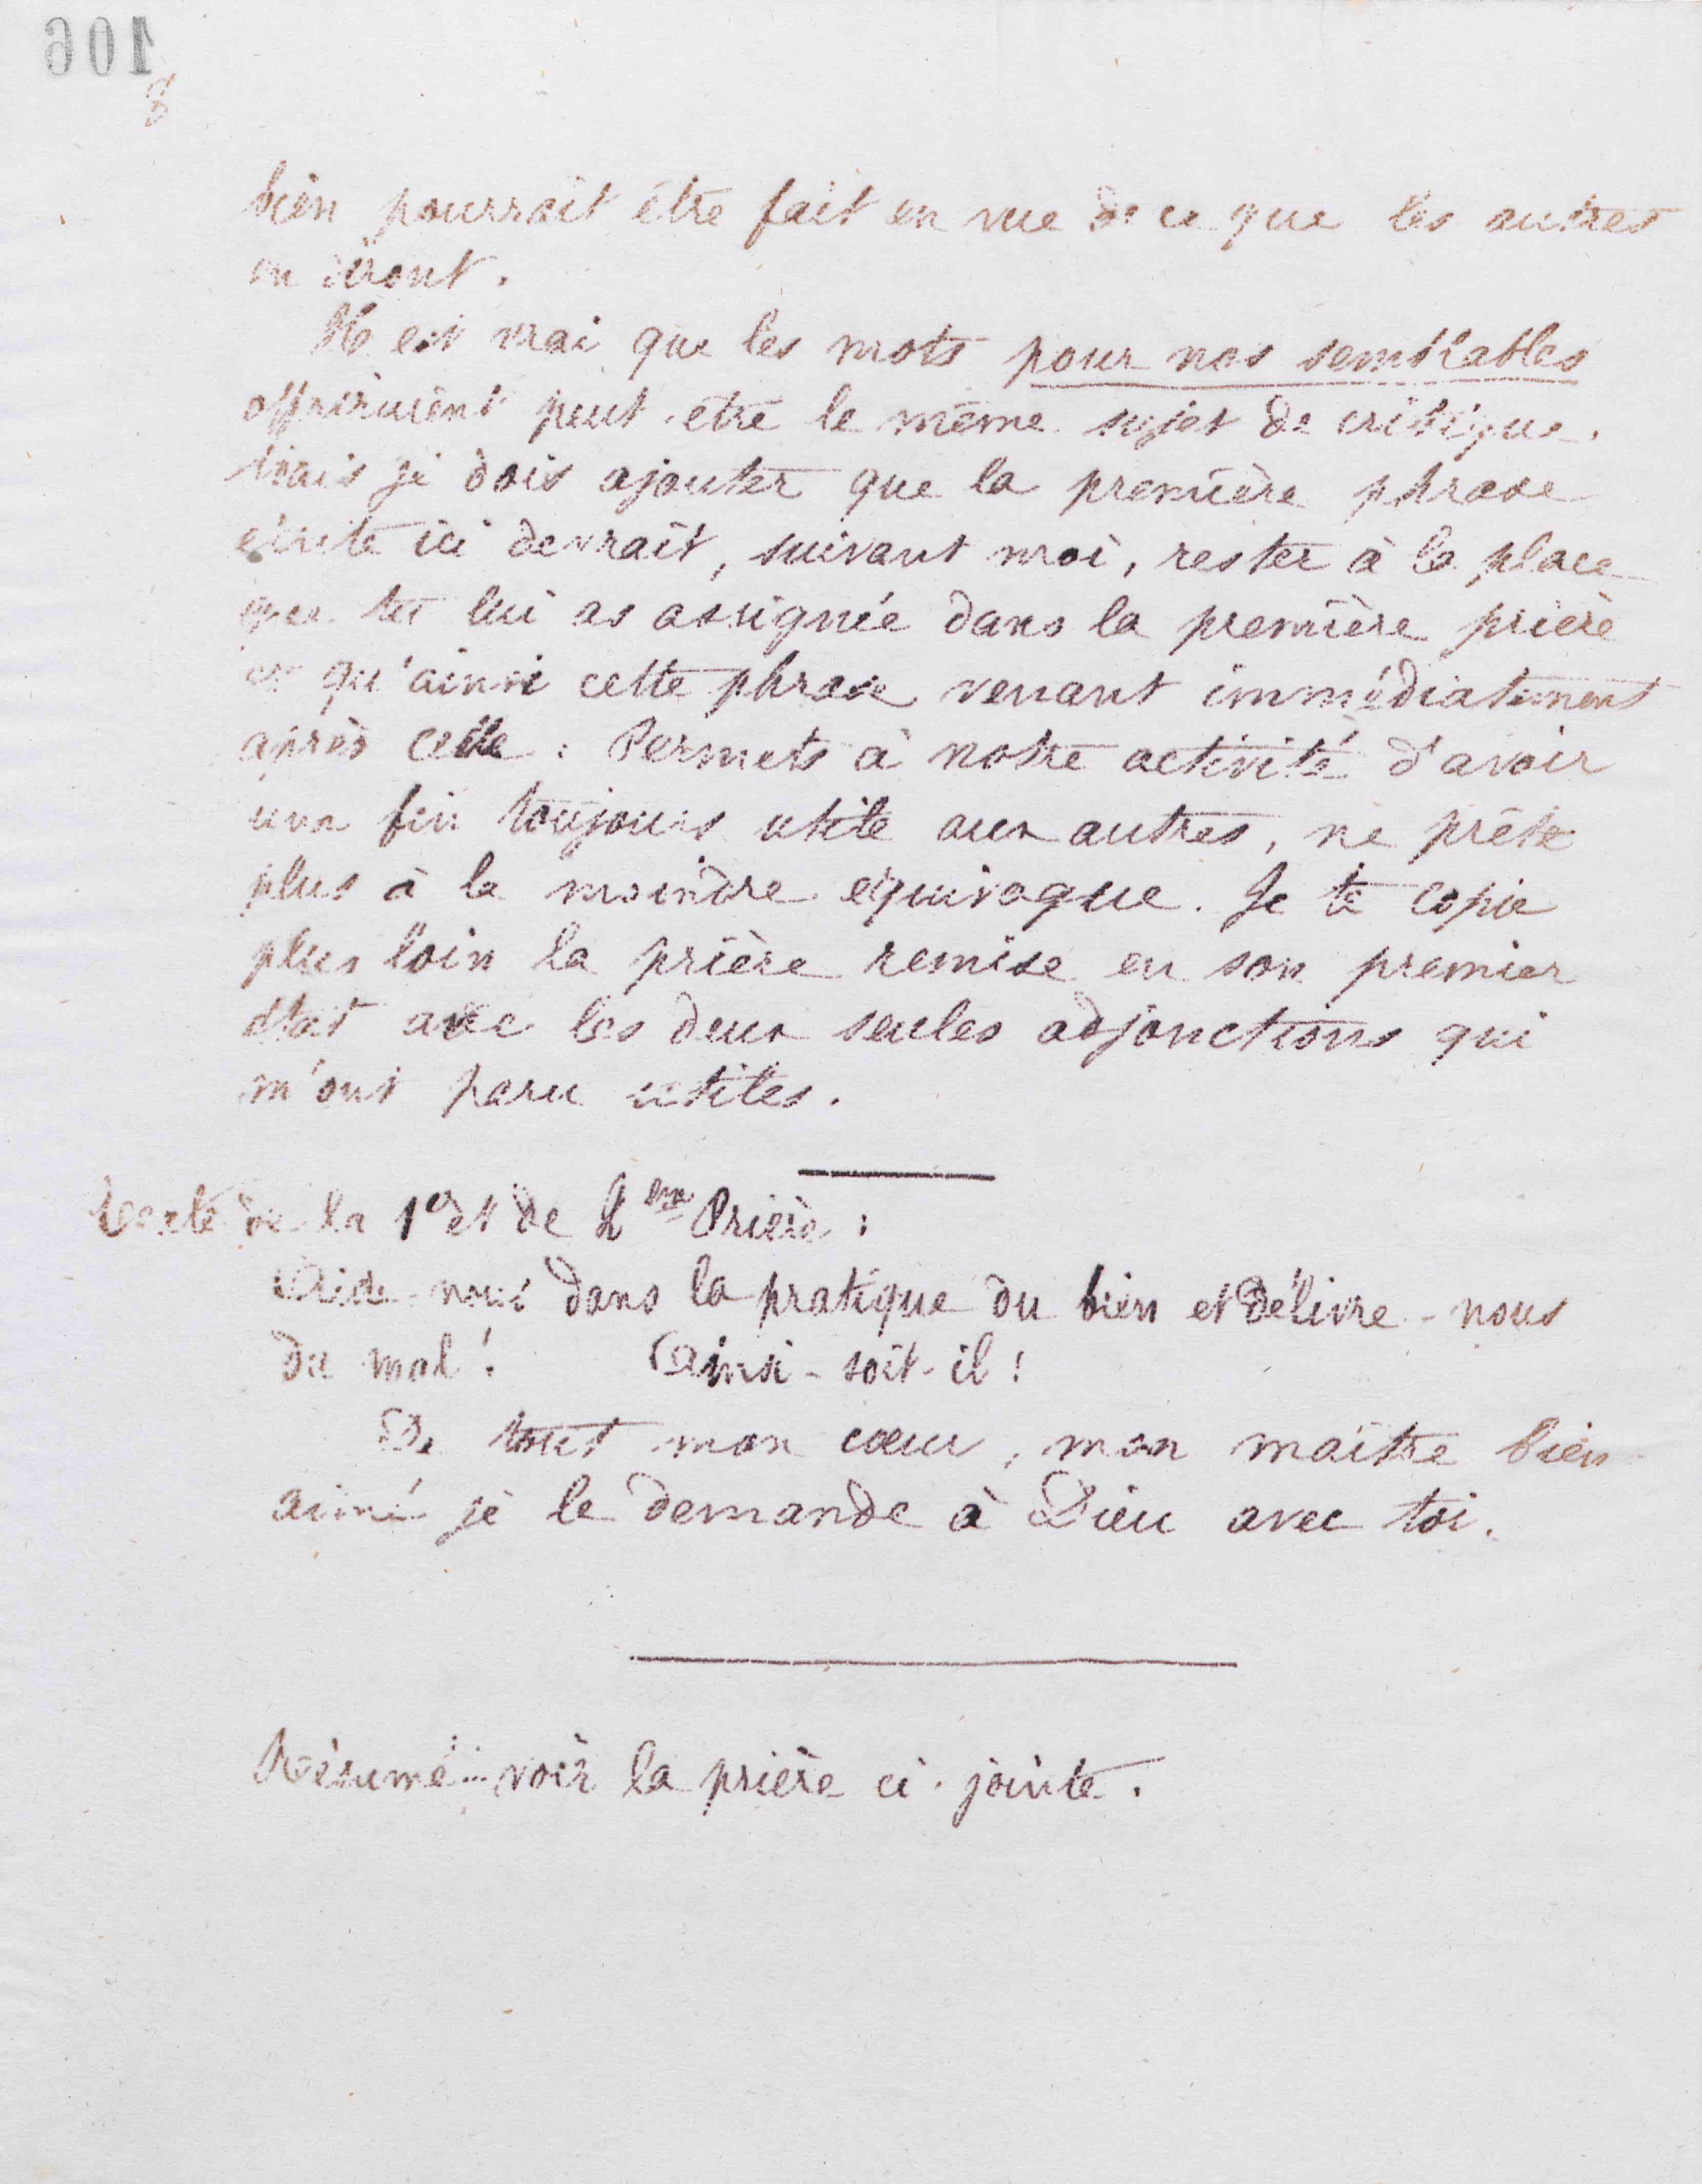 106
8
bien pourrait être fait en vue de ce que les autres
en diront.
Il est vrai que les mots pour nos semblables
offriraient peut être le même sujet de critique.
Mais je dois ajouter que la première phrase
écrite ici devrait, suivant moi, rester à la place
que tu lui as assignée dans la première prière
et qu'ainsi cette phrase venant immédiatement
après celle : Permets à notre activité d'avoir
une fin toujours utile aux autres, ne prête
plus à la moindre équivoque. Je te copie
plus loin la prière remise en son premier
état avec les deux seules adjonctions qui
m'ont paru utiles.
Texte de la 1e et de 2eme Prière :
Aide-nous dans la pratique du bien et délivre-nous
du mal ! Ainsi-soit-il !
De tout mon cœur, mon maître bien
aimé je le demande à Dieu avec toi.
Résumé : voir la prière ci-jointe.